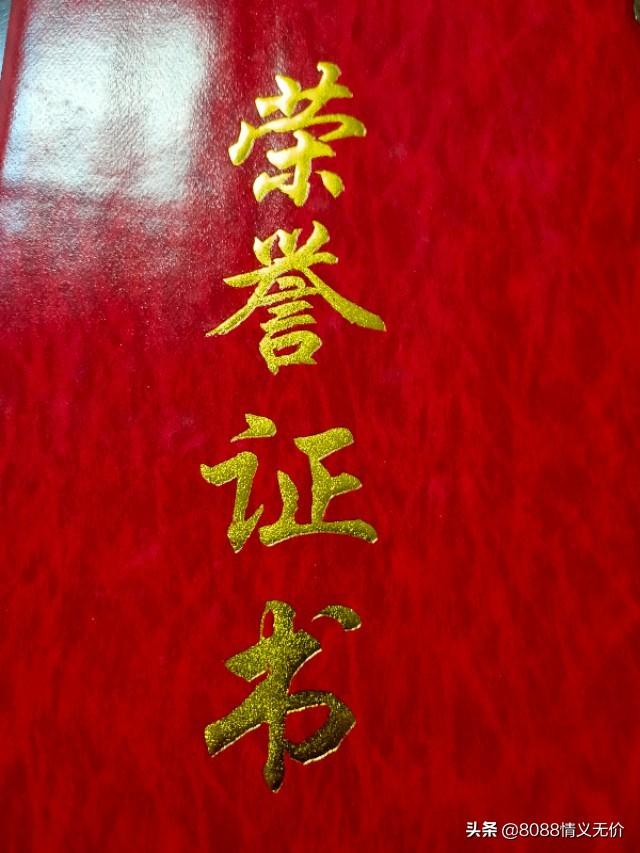 荣誉证书
头条 @8088情义无价